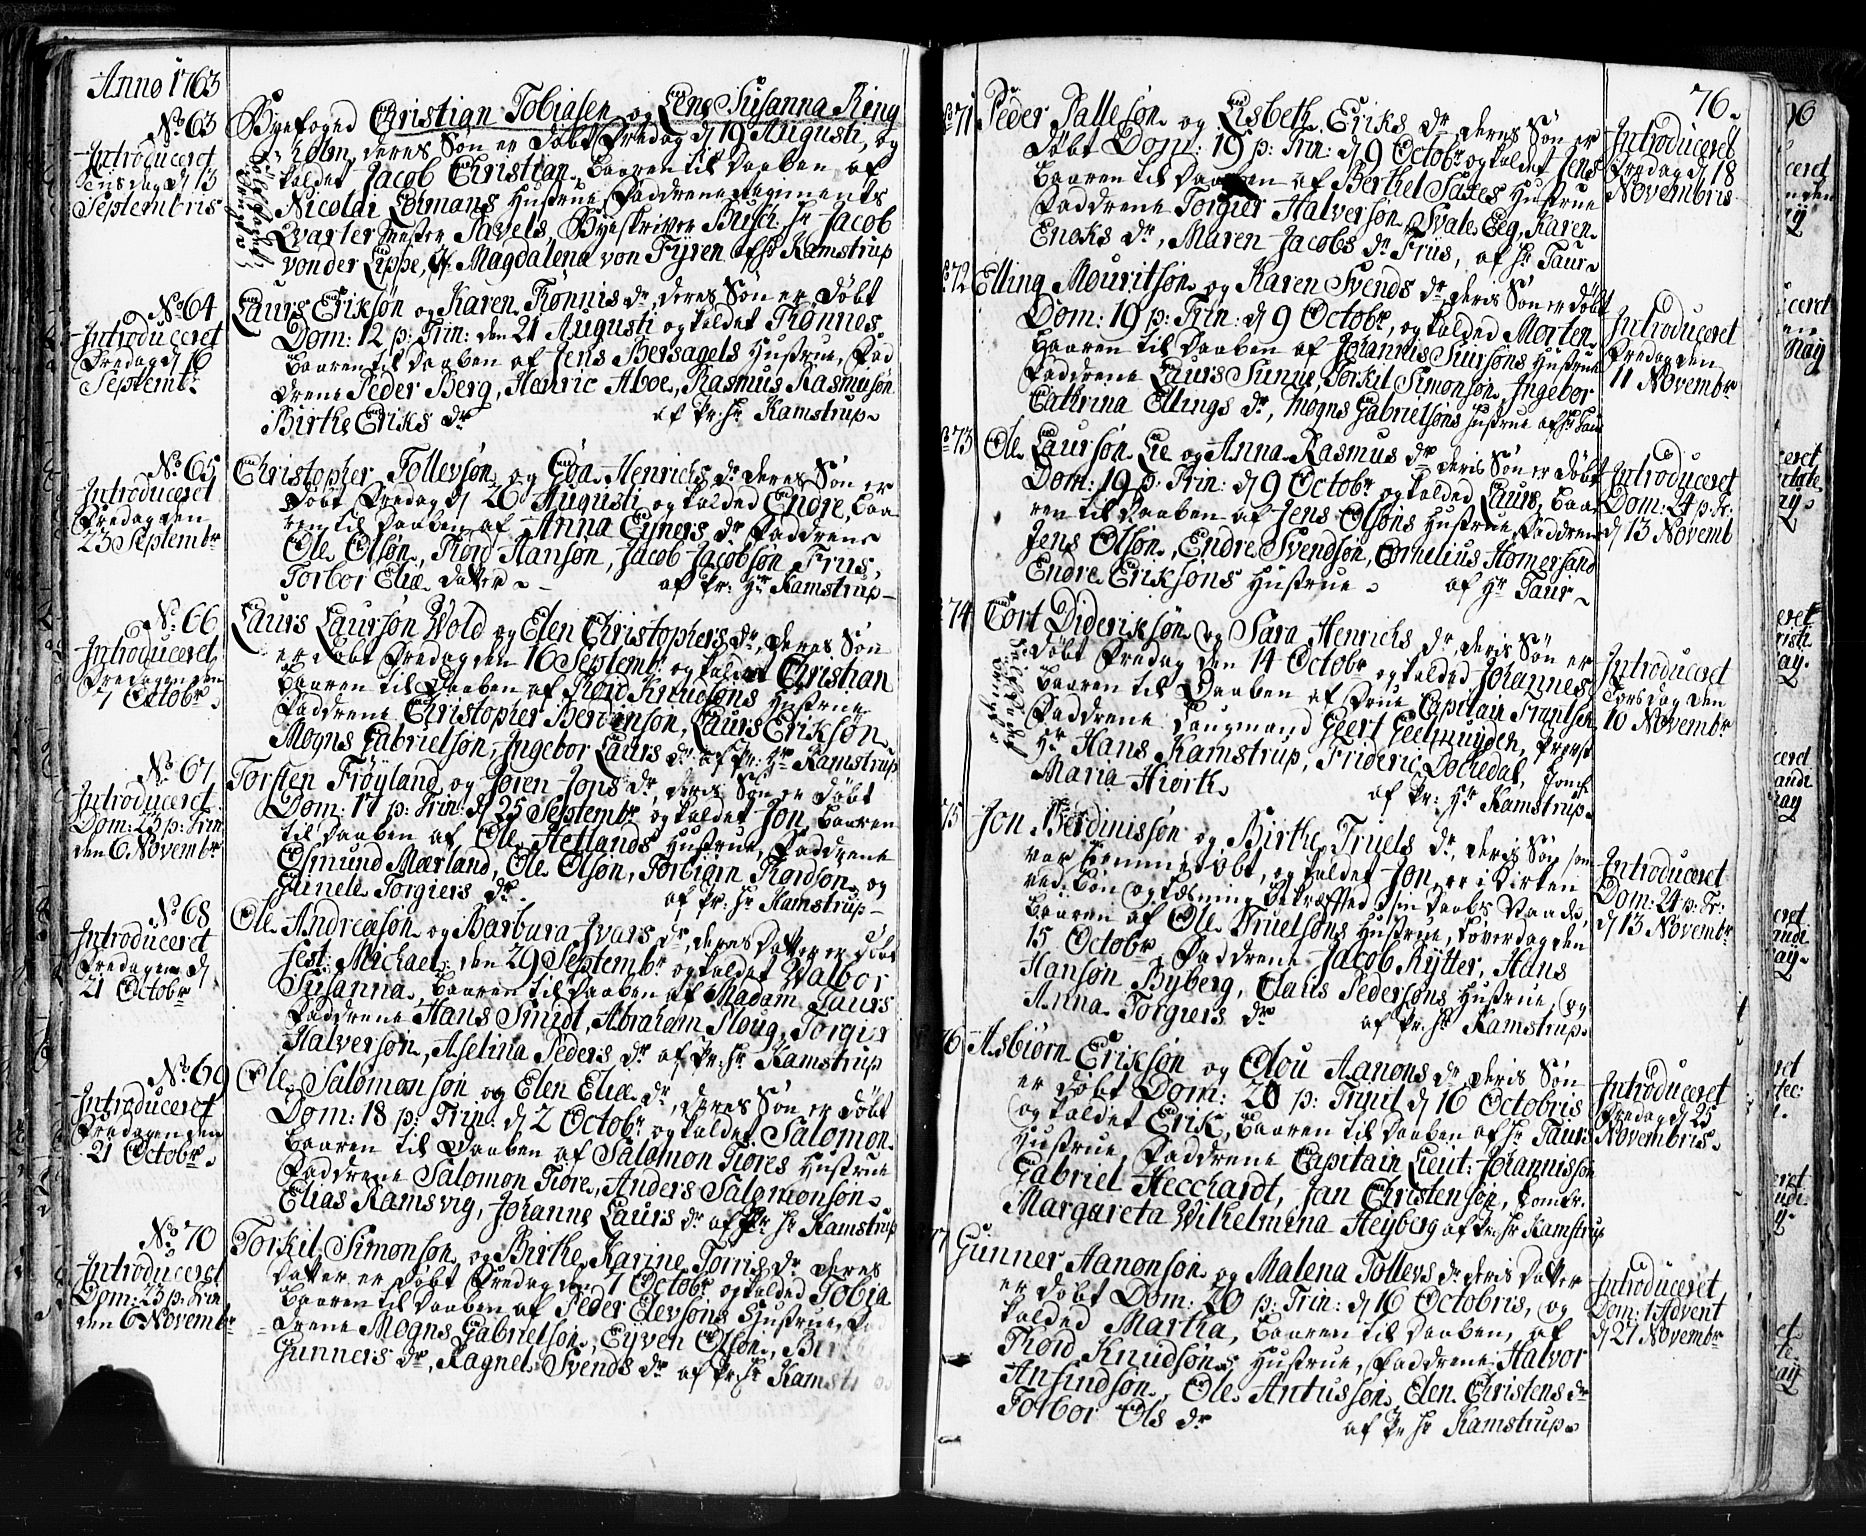 Anno 1763
No. 63
Introduceret
Tirsdag d 13
Septembris
Byefoged Christian Tobiasen og Lene Susanna Ring
Holm, deres Søn er døbt Fredag d 19 Augusti, og
kaldet Jacob Christian, baaren til Daaben af
Nicolai Lohmans Hustrue Faddrene Regiments
Qvarter Mester Pavels, Byeskriver Busch, Hr Jacob
von der Lippe, Magdalena von Fyren af Hr Kamstrup
No. 64
Introduceret
Fredag d 16
Septembr
Laurs Eriksøn og Karen Tønnis dr, deres Søn er døbt
Dom: 12 p: Trin: den 21 Augusti og kaldet Tønnes
baaren til Daaben af Jens Bersagels Hustrue, Fad
drene Peder Berg, Henric Aboe, Rasmus Rasmusøn
Birthe Eriks dr af Pr: Hr Kamstrup
No. 65
Introduceret
Fredag den
23 Septembr
Christopher Tollevsøn og Eda Henrichs dr deres Søn er
døbt Fredag d 26 Augusti og kalded Endre, baa
ren til Daaben af Anna Ejners dr Faddrene
Ole Olsøn, Tord Hansøn, Jacob Jacobsøn Friis,
Torbor Eliæ datter af Pr: Hr Kamstrup
No. 66
Introduceret
Fredagen den
7 Octobr
Laurs Laursøn Wold og Elen Christophers dr, deres Søn
er døbt Fredag den 16 Septembr og kaldet Christian
baaren til Daaben af Tord Knudsøns Hustrue
Faddrene Christopher Berdinsøn, Laurs Eriksøn
Mogns Gabrielsøn, Ingebor Laurs dr af Pr: Hr Kamstrup
No. 67
Introduceret
Dom: 23 p: Trin
den 6 Novembr
Torsten Frøyland og Joren Jons dr, deres Søn er døbt
Dom: 17 p: Trin: d 25 Septembr og kaldet Jon baaren
til Daaben af Ole Hetlands Hustrue, Faddrene
Osmund Mærland, Ole Olsøn, Torbiørn Tordsøn og
Gunele Torgiers dr af Pr: Hr Kamstrup
No. 68
Introduceret
Fredagen d
21 Octobr
Ole Andreasøn og Barbara Ivars dr, deres Datter er døbt
fest: Michael: den 29 Septembr og kaldet Walbor
Susanna, baaren til Daaben af Madam Laurs
Faddrene Hans Smidt, Abraham Ploug, Torgier
Halversøn, Aselina Peders dr af Pr: Hr Kamstrup
No. 69
Introduceret
Fredagen den
21 Octobr
Ole Salomonsøn og Elen Eliæ dr, deres Søn er døbt
Dom: 18 p: Trin: d 2 Octobr og kaldet Salomon
baaren til Daaben af Salomon Tiores Hustrue
Faddrene Salomon Tiore, Anders Salomonsøn
Elias Ramsvig, Johanne Laurs dr af Pr Hr Kamstrup
No. 70
Introduceret
Dom: 23 p: Trin
den 6 Novembr
Torkil Simonsøn og Birthe Karine Torris dr deres
Datter er døbt Fredag den 7 Octobr og kalded Tobia
baaren til Daaben af Peder Elevsøns Hustrue
drene Mogns Gabrielsøn, Eyven Olsøn,
Gunners dr, Ragnel Svends dr af Pr: Hr
76
71
Peder Pallesøn og Lisbeth Eriks dr deres Søn er
døbt Dom: 19 p: Trin: d 9 Octobr og kaldet Jens
baaren til Daaben af Berthel Sales Hustrue
Faddrene Torgier Halversøn, Svale Eeg, Karen
Enoks dr, Maren Jacobs dr Friis, af Hr Taur
Introduceret
Fredag d 18
Novembris
72
Elling Mouritsøn og Karen Svends dr deris Søn er døbt
Dom: 19 p: Trin: d 9 Octobr, og kalded Morten
baaren til Daaben af Johannis Siursøns Hustrue
Faddrene Laurs Sunne, Torkil Simonsøn, Ingebor
Cathrina Ellings dr, Mogns Gabrielsøns Hustrue af Hr Taur
Introduceret
Fredag den
11 Novembr
73
Ole Laursøn Lie og Anna Rasmus dr deris Søn er døbt
Dom: 19 p: Trin: d 9 Octobr og kalded Laurs, baa
ren til Daaben af Jens Olsøns Hustrue, Faddrene
Jens Olsøn, Endre Svendsøn, Cornelius Homersand
Endre Eriksøns Hustrue af Hr Taur
Introduceret
Dom: 24 p: Tr:
d 13 Novemb
74
Cort Dideriksøn og Sara Henrichs dr deris Søn er
døbt Fredag den 14 Octobr og kalded Johannes
baaren til Daaben af Frue Capitain Frantsen
Faddrene Laugmand Geert Geelmuyden, Provst
Hr Hans Kamstrup, Frideric Lochedal, Jomfr
Maria Hiorth af Pr: Hr Kamstrup
Introduceret
Torsdag den
10 Novembr
75
Jon Berdinissøn og Birthe Truels dr, deris Søn som
var hiemmedøbt, og kaldet Jon, er i Kirken
ved Bøn og Læsning bekræfted i sin Daabs Naade,
baaren af Ole Truelsøns Hustrue, Løverdag den
15 Octobr, Faddrene Jacob Rytter, Hans
Hansøn Byberg, Claus Pedersøns Hustrue, og
Anna Torgiers dr af Pr: Hr Kamstrup
Introduceret
Dom: 24 p: Tr:
d 13 Novembr
76
Asbiørn Eriksøn og Olou Aanons dr deris Søn
er døbt Dom: 20 p: Trinit d 16 Octobris
og kaldet Erik, baaren til Daaben af Hr Taurs
Hustrue, Faddrene Capitain Lieut: Johannissøn
Gabriel Hecchardt, Jan Christensøn, Jomfr.
Margareta Wilhelmina Heyberg af Pr: Hr Kamstrup
Introduceret
Fredag d 25
Novembris
77
Gunner Aanonsøn og Malena Tollevs dr deris Datter
er døbt Dom: 20 p: Trin: d 16 Octobris, og
kalded Martha, baaren til Daaben, af
Tord Knudsøns Hustrue, Faddrene Halvor
Ansindsøn, Ole Antussøn, Elen Christens dr
Torbor Ols dr af Pr Hr Kamstrup
Introduceret
Dom: 1 Advent
d 27 Novembr